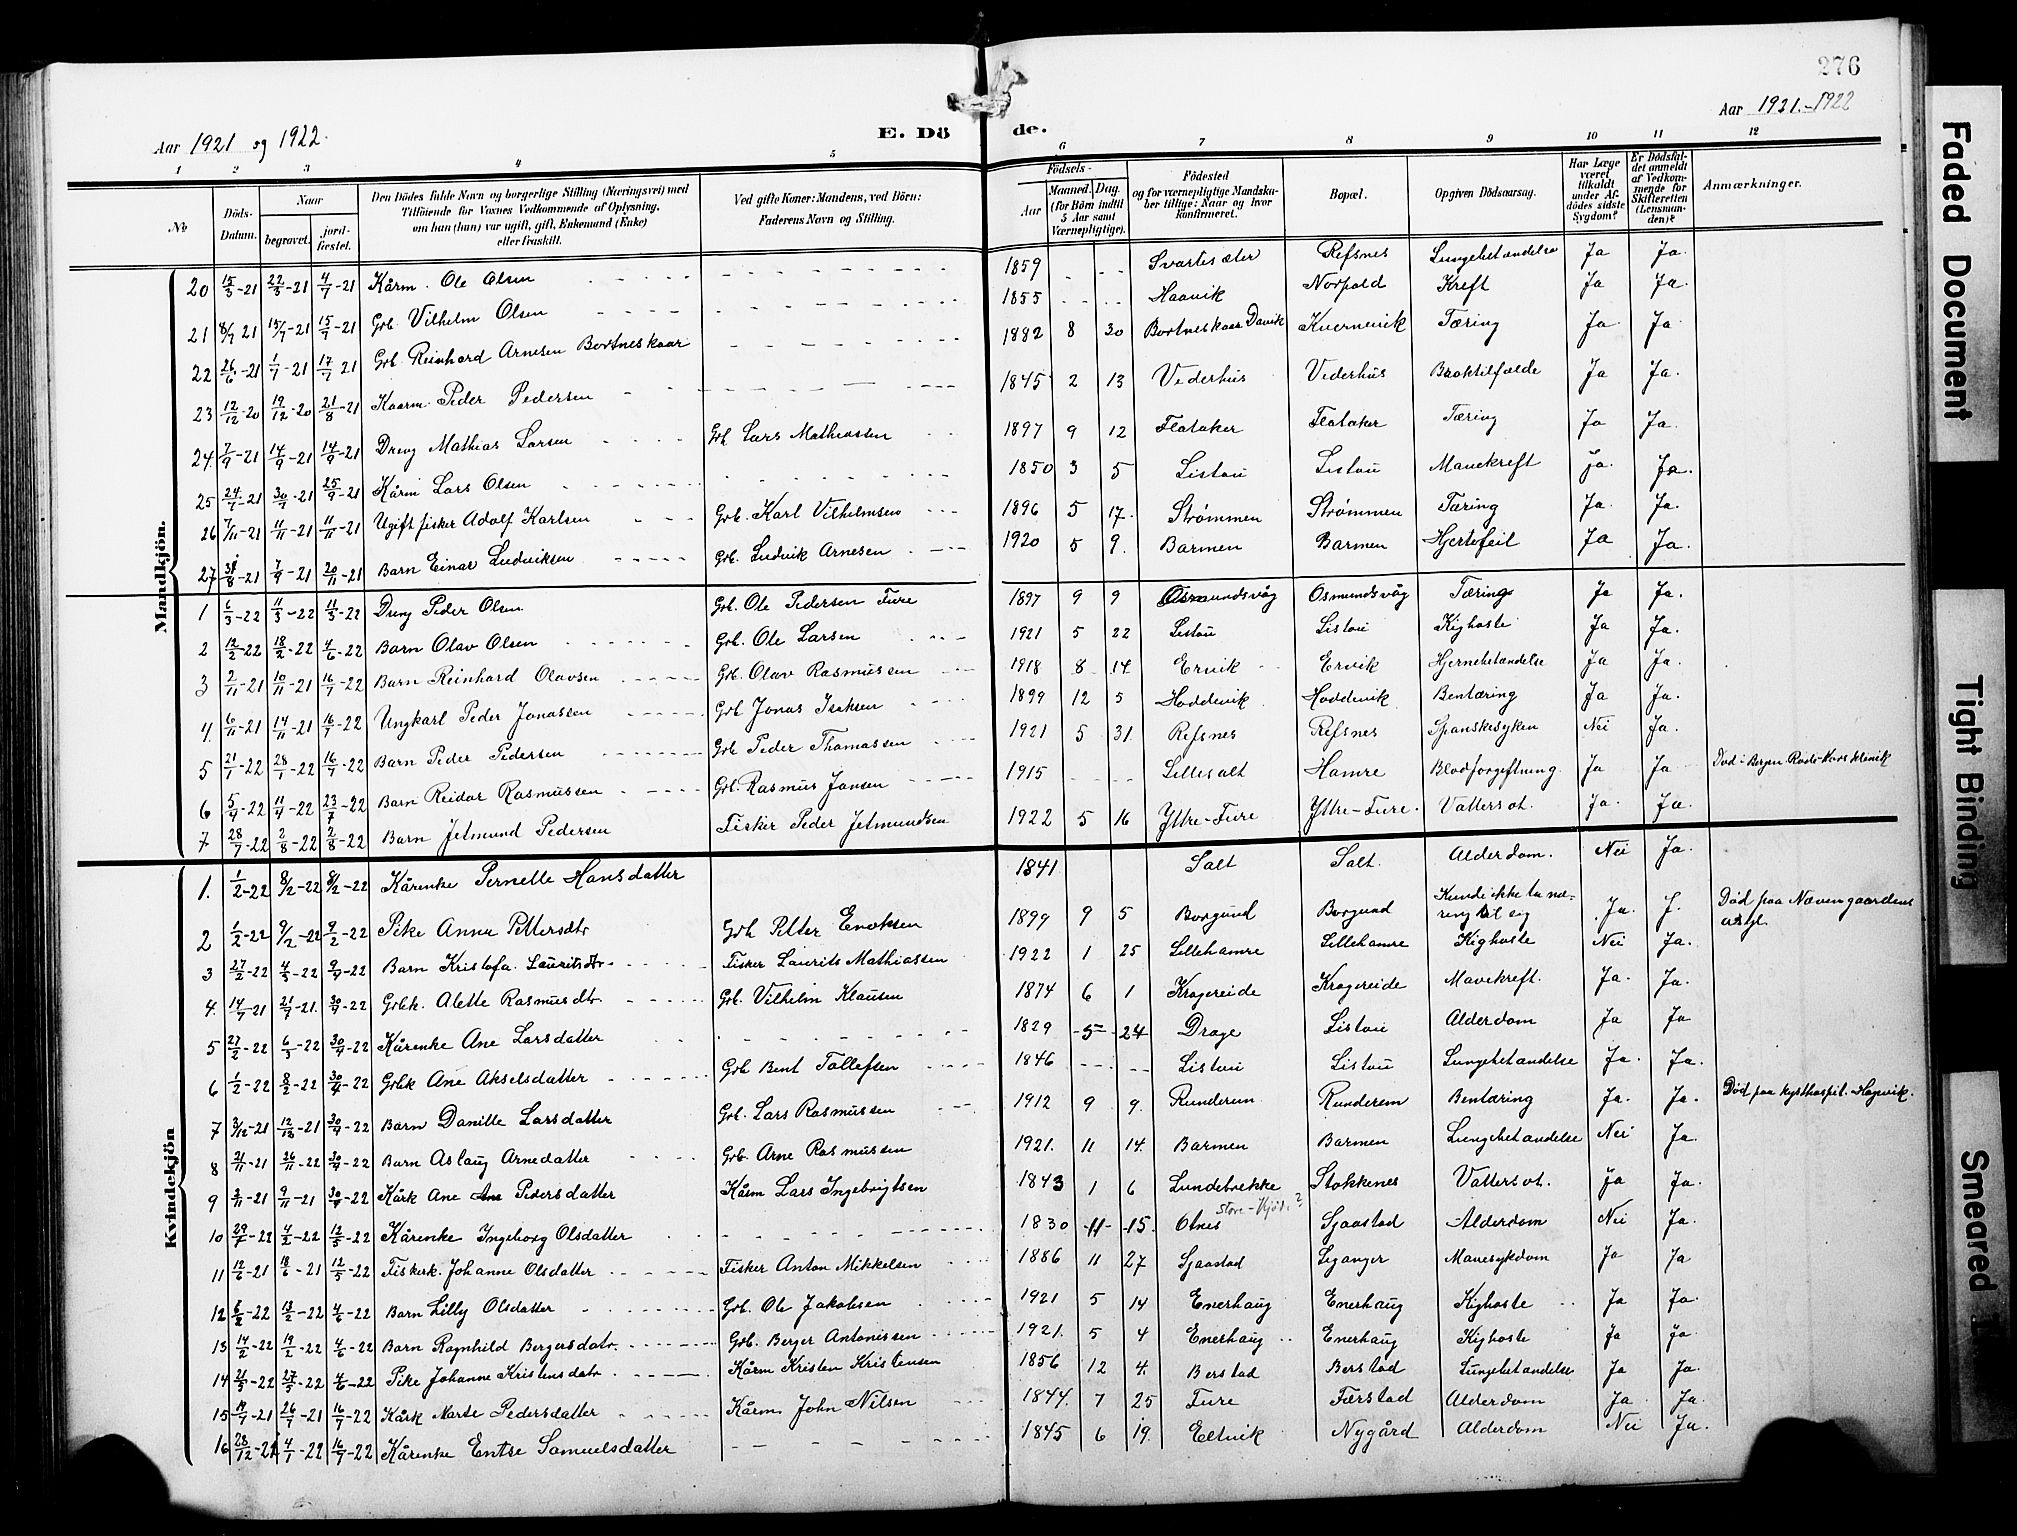 276
Aar 1921 og 1922.
E. Dö de.
Aar 1921.-1922
1 2 3 4 5 6 7 8 9 10 11 12
No
Döds-Datum.
Naar begravet. jord-fæstet.
Den Dödes fulde Navn og borgerlige Stilling (Næringsvei) med Tilföiende for Voxnes Vedkommende af Oplysning, om han (hun) var ugift, gift, Enkemand (Enke) eller fraskilt.
Ved gifte Koner: Mandens, ved Börn: Faderens Navn og Stilling.
Födsels-
Aar Maaned. Dag. (for Börn indtil 5 Aar samt Værnepligtige).
Födested og for værnepligtige Mandskaber tillige: Naar og hvor konfirmeret.
Bopæl.
Opgiven Dödsaarsag.
Har Læge været tilkaldt under Afdödes sidste Sygdom?
Er Dödsfaldet anmeldt af Vedkommende for Skifteretten (Lensmanden)?
Anmærkninger.
Mandkjön.
20 15/3-21 22/3-21 4/7-21 Kårm. Ole Olsen 1859 Svartesæter Refsnes Lungebetændelse Ja Ja.
21 8/7 21 15/7-21 15/7-21 Grb. Vilhelm Olsen 1855 Haavik Norpold Kreft Ja Ja.
22 26/6-21 1/7-21 17/7 21 Grb. Reinhard Arnesen Bortneskaar 1882 8 30 Bortneskaar Davik Kvernevik Tæring Ja Ja.
23 12/12-20 19/12-20 21/8-21 Kaarm. Peder Pedersen 1845 2 13 Vederhus Vederhus Broktilfælde Ja Ja.
24. 7/9-21 14/9-21 14/9-21 Dreng Mathias Larsen Grb. Lars Mathiassen 1897 9 12 Flataker Flataker Tæring Ja Ja.
25 24/7-21 30/7-21 25/9-21 Kårm Lars Olsen 1850 3 5 Listou Listou Mavekreft Ja. Ja.
26 7/11-21 11/11-21 11/11-21 Ugift fisker Adolf Karlsen Grb. Karl Vilhelmsen 1896 5 17. Strømmen Strømmen Tæring Ja. Ja.
27 31/8-21 7/9-21 20/11-21 Barn Einar Ludviksen Grb. Ludvik Arnesen 1920 5 9. Barmen Barmen Hjertefeil Ja Ja.
1 6/3-22 11/3-22 11/3-22 Dreng Peder Olsen Grb. Ole Pedersen Fure 1897 9 9 Osmundsvåg Osmundsvåg Tæring Ja Ja.
2 12/2-22 18/2-22 4/6-22 Barn Olav Olsen Grb. Ole Larsen 1921 5 22 Listou Listou Kighoste Ja Ja.
3 2/11-21 10/11-21 16/7-22 Barn Reinhard Olavsen Grb. Olav Rasmussen 1918 8 14 Ervik Ervik Hjernebetændelse Ja Ja.
4. 6/11-21 14/11-21 16/7-22 Ungkarl Peder Jonassen Grb Jonas Isaksen 1899 12 5 Hoddevik Hoddevik Bentæring Ja Ja.
5 21/1-22 28/1-22 16/7-22 Barn Peder Pedersen Grb Peder Thomassen 1921 5 31 Refsnes Refsnes Spanskesyken Nei Ja.
6 5/4-22 11/4-22 23/7-22 Barn Reidar Rasmussen Grb. Rasmus Jansen 1915 Lillesalt Hamre Blodforgiftning. Ja Ja Død i Bergen Røde-Kors klinik
7 28/7-22 2/8-22 2/8-22 Barn Jetmund Pedersen Fisker Peder Jetmundsen 1922 5 16 Yttre-Fure Yttre-Fure. Vattersot. Ja. Ja.
Kvindekjön
1. 1/2-22 8/2-22 8/2-22 Kårenke Pernelle Hansdatter 1841 Salt Salt. Alderdom. Nei Ja.
2 1/2-22 9/2-22 9/2-22 Pike Anna Pettersdtr Grb Petter Enoksen 1899 9 5 Borgund Borgund Kunde ikke ta næring til sig Ja. J. Død paa Nævengaardens asyl.
3 27/2-22 4/3-22 9/4-22 Barn Kristofa. Lauritsdtr. Fisker Laurits Mathiassen 1922 1 25 Lillehamre Lillehamre Kighoste Nei Ja.
4. 14/7-21 21/7-21. 30/4-22 Grbk. Alette Rasmusdtr. Grb. Vilhelm Klausen 1874 6 1 Kragereide Kragereide Mavekreft. Ja. Ja.
5 27/2-22 6/3-22 30/4-22 Kårenke Ane Larsdatter 1829 5 24 Drage Listou Alderdom Ja Ja
6 1/2-22 8/2-22 30/4-22 Grbk Ane Akselsdatter Grb Bent Tollefsen 1846 Listou Listou Lungebetændelse Ja. Ja.
7 3/12-21 12/12-21 30/4-22 Barn Danille Larsdatter Grb. Lars Rasmussen 1912 9 9. Runderem Runderem Bentæring Ja. Ja. Død paa kysthospit. Hagevik.
8 21/11-21 26/11-22 30/4-22 Barn Aslaug Arnedatter Grb. Arne Rasmussen 1921. 11 14. Barmen Barmen Lungebetændelse Nei Ja
9 2/11-21 9/11-21 30/4-22 Kårk Ane Pedersdatter Kårm Lars Ingebrigtsen 1843 1 6 Lundebrekke Stokkenes Vattersot. Ja Ja.
10 29/1-22 4/2-22 12/5-22 Kårenke Ingeborg Olsdatter 1830 11 15. Otnes Sjaastad Alderdom Nei Ja.
11 12/6-21 18/6-21 12/5-22 Fiskerk. Johanne Olsdatter Fisker Anton Mikkelsen 1886 11 27 Sjaastad Leganger Mavesykdom Ja Ja
12 6/2-22 13/2-22 4/6-22 Barn Lilly Olsdatter Grb. Ole Jakobsen 1921 5 14 Enerhaug Enerhaug Kighoste Ja Ja.
13 14/2-22 19/2-22 4/6-22 Barn Ragnhild Bergersdatr. Grb. Berger Antonissen 1921. 5 4 Enerhaug Enerhaug Kighoste Ja Ja.
14 21/5-22 27/5-22 4/6-22 Pike Johanne Kristensdatr Kårm Kristen Kristensen 1856 12 4. Berstad Berstad Lungebetændelse Ja Ja.
15 19/7-21 26/7-21 16/7-22 Kårk Marte Pedersdatter Kårm. John Nilsen 1844. 7 25 Fure Færstad Alderdom Ja. Ja.
16 28/12-21 4/1-22 16/7-22 Kårenke Entse Samuelsdatter 1845 6 19. Eltvik Nygård Alderdom Nei Ja.
Faded Document
Tight Binding
Smeared